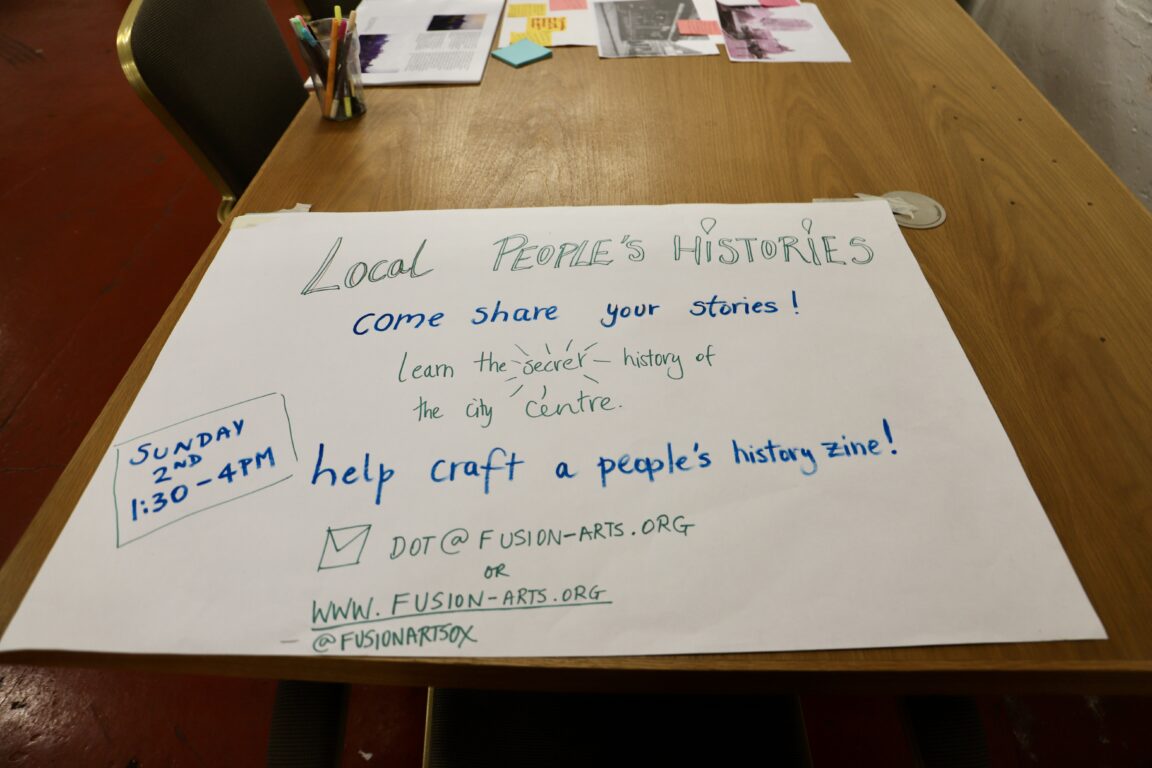 Local PEOPLE'S HiSTORiES
come share your stories!
learn the secret history of
the city centre.
SUNDAY
2ND
1:30-4PM
help craft a people's history zine!
DOT@FUSION-ARTS.ORG
OR
WWW.FUSION-ARTS.ORG
@FUSIONARTSOX